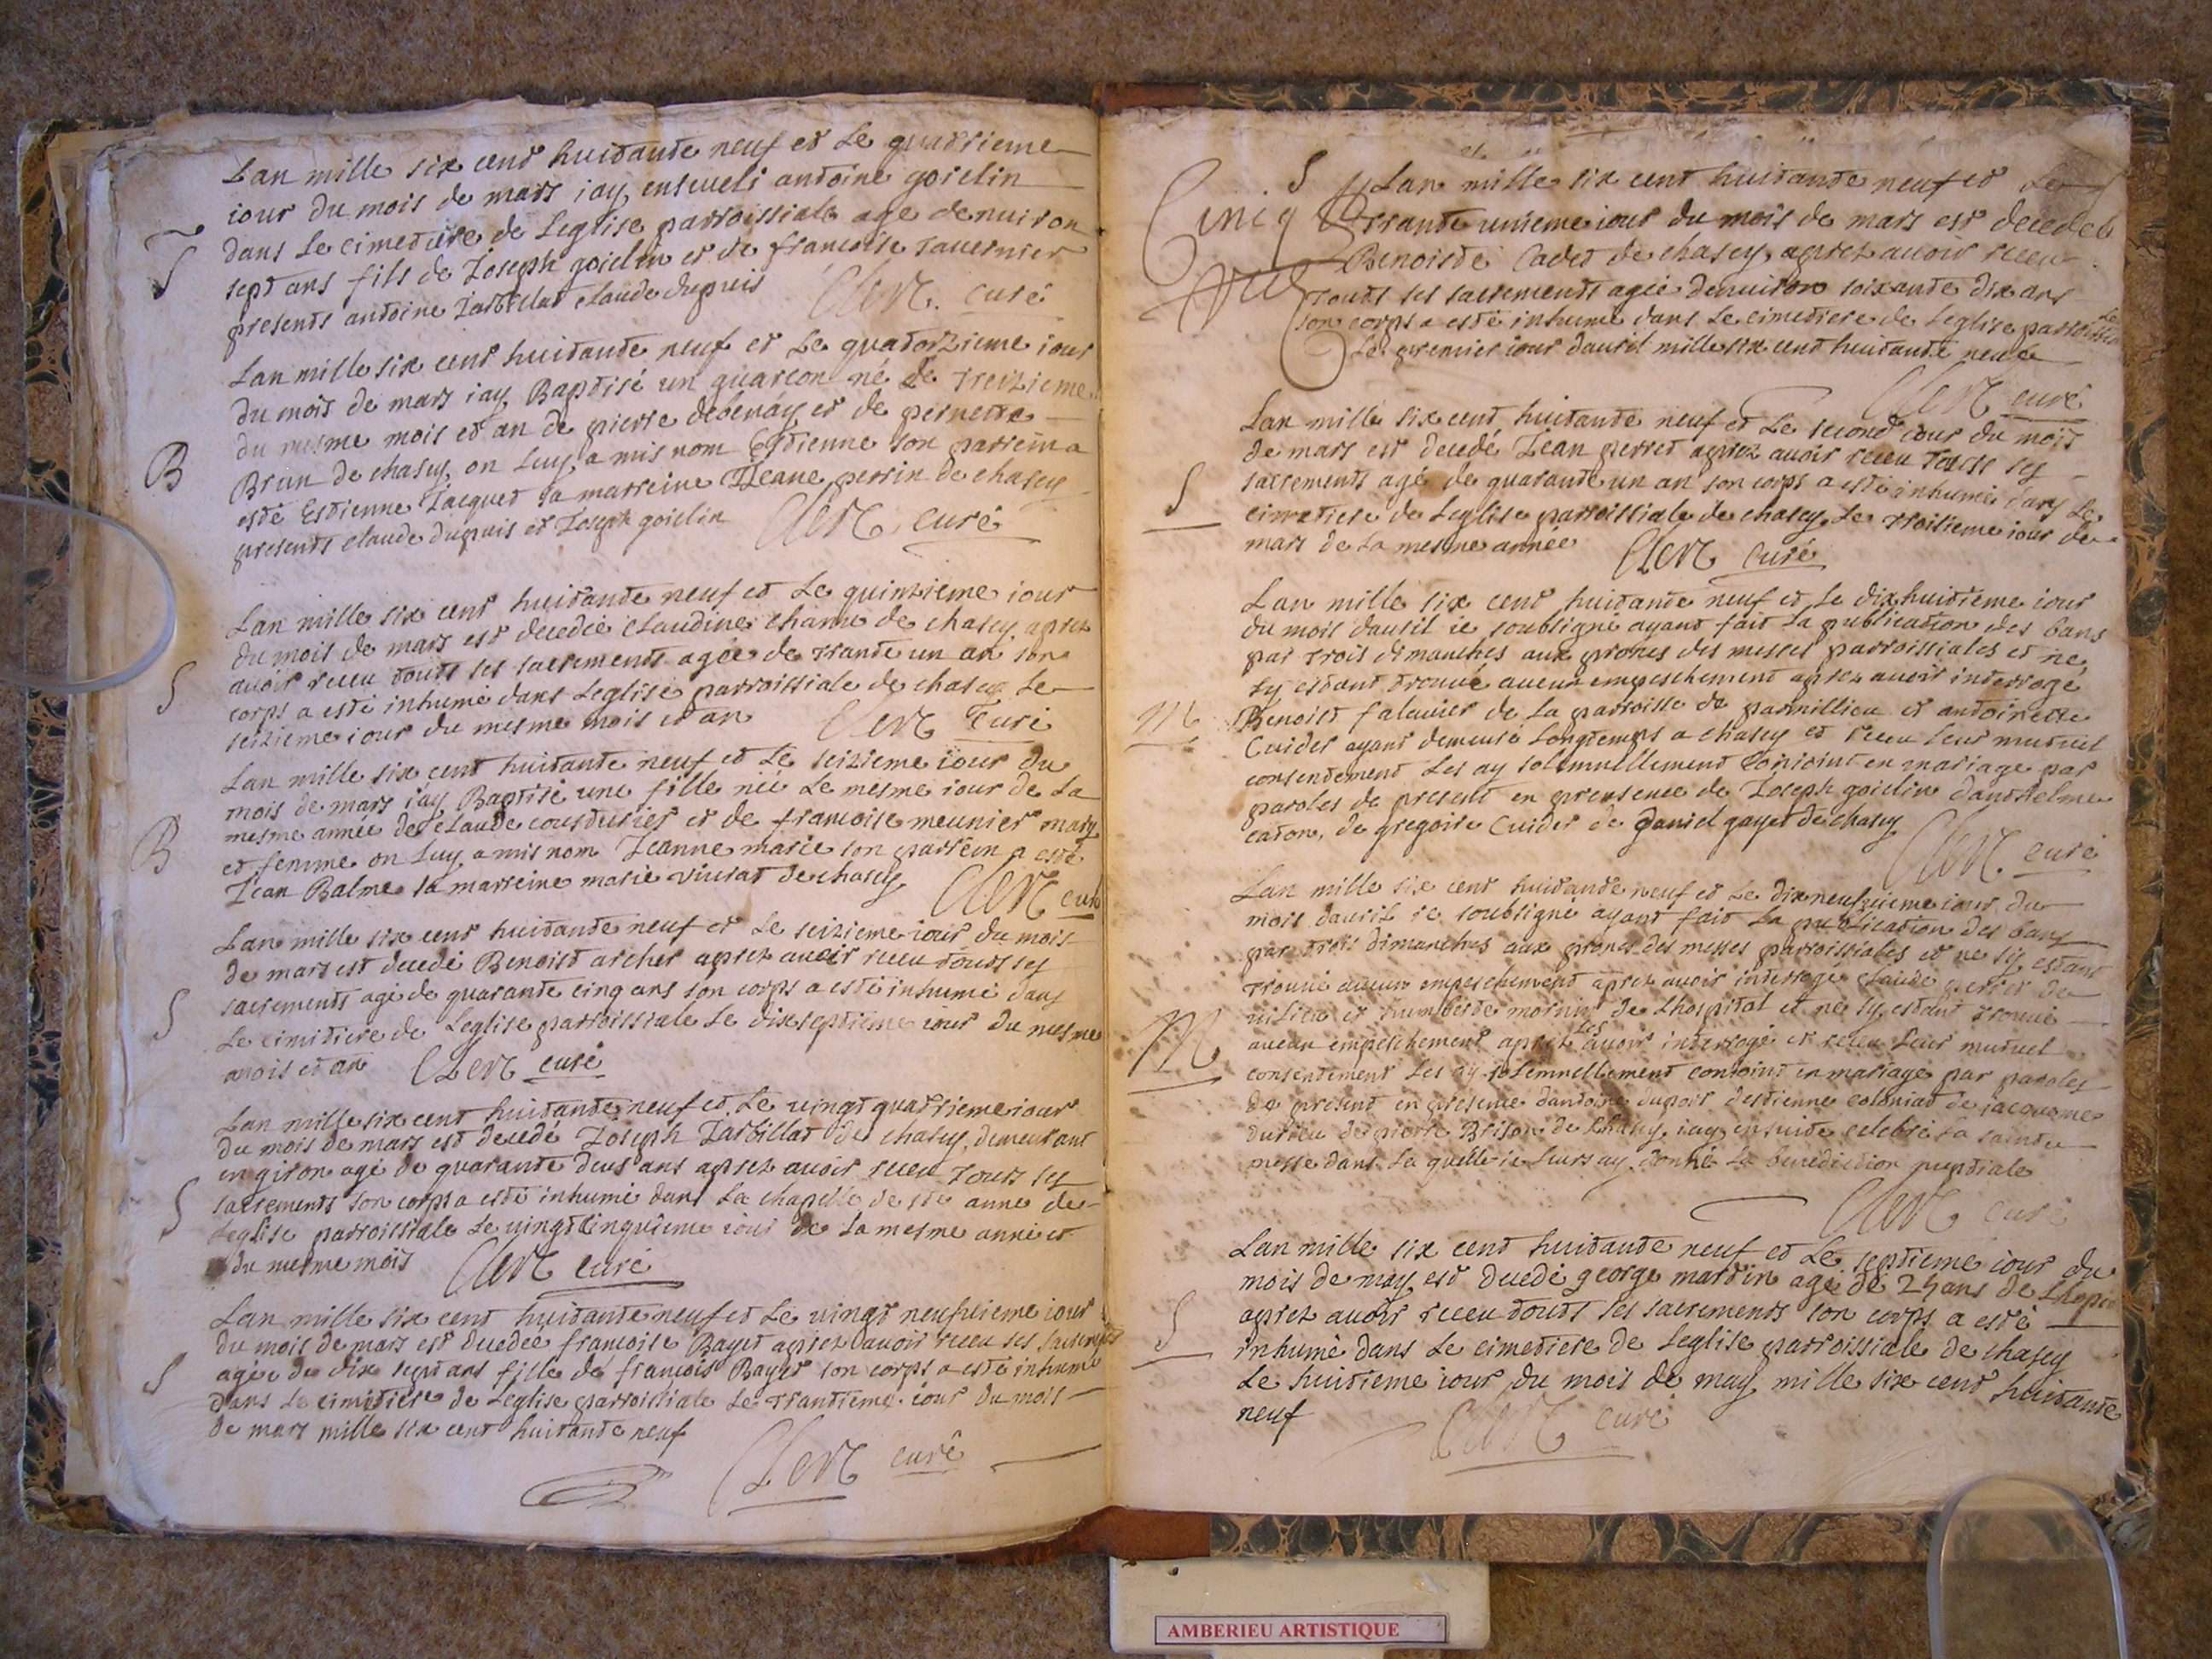 Lan mille six cent huitante neuf et Le quatrieme
iour du mois de mars iay enseveli antoine goielin
dans Le cimetiere de Leglise parroissiale age denuiron
S
sept ans fils de Ioseph goielin et de francoise Tavernier
presents antoine Iarbillat claude dupuis Clerc curé
Lan mille six cent huitante neuf et Le quatorzieme iour
du mois de mars iay Baptisé un guarcon né Le Treizieme
du mesme mois et an de pierre debenay et de pernette
B
Brun de chasey, on Luy a mis nom Estienne son parrein a
esté Estienne Iacquet sa marreine Ieane perrin de chasey
presents claude dupuis et Ioseph goielin Clerc curé
Lan mille six cent huitante neuf et Le quinzieme iour
du mois de mars est decedée claudine chanu de chasey apres
avoir receu touts ses sacrements agée de trante un an son
S
corps a esté inhumé dans Leglise parroissiale de chasey Le
seizieme iour du mesme mois et an Clerc Curé
Lan mille six cent huitante neuf et Le seizieme iour du
mois de mars iay Baptisé une fille née Le mesme iour de La
mesme année de claude cousturier et de francoise meunier mary
B
et femme on Luy a mis nom Ieanne marie son parrein a esté
Iean Balme sa marreine marie vivrat de chasey Clerc curé
Lan mille six cent huitante neuf et Le seizieme iour du mois
de mars est decedé Benoist archer apres avoir receu touts ses
sacrements agé de quarante cinq ans son corps a esté inhumé dans
S
Le cimitiere de Leglise parroissiale Le dixseptieme iour du mesme
mois et an Clerc curé
Lan mille six cent huitante neuf et Le vingt quatrieme iour
du mois de mars est decedé Ioseph Iarbillat de chasey demeurant
en giron agé de quarante deus ans apres avoir receu Touts ses
S
sacrements son corps a esté inhumé dans La chapelle de ste anne de
Leglise parroissiale Le vingtcinquieme iour de La mesme année et
du mesme mois Clerc curé
Lan mille six cent huitante neuf et Le vingt neufvieme iour
du mois de mars est decedée francoise Bayet apres avoir receu ses sacrements
agée de dix sept ans fille de francois Bayet son corps a esté inhumé
S
dans Le cimitiere de Leglise parroissiale Le Trantieme iour du mois
de mars mille six cent huitante neuf
Clerc curé
S
Lan mille six cent huitante neuf et Le
Cinq
trante unieme iour du mois de mars est decedée
Benoiste Cadet de chasey apres avoir receu
touts ses sacrements agée denuiron soixante dix ans
son corps a esté inhumé dans Le cimetiere de Leglise parroissiale
Le premier iour dauril mille six cent huitante neuf
Clerc curé
Lan mille six cent huitante neuf et Le second iour du mois
de mars est decedé Iean perret apres avoir receu Touts ses
S
sacrements agé de quarante un an son corps a esté inhumé dans Le
cimetiere de Leglise parroissiale de chasey Le Troisieme iour de
mars de La mesme annee Clerc curé
Lan mille six cent huitante neuf et Le dix huitieme iour
du mois dauril ie soubsigné ayant fait La publication des bans
par Trois dimanches aux prones des messes parroissiales et ne
sy estant trouvé aucun empeschement apres avoir interrogé
M
Benoist falavier de La parroisse de parmillieu et antoinette
Cuider ayant demeuré Longtemps a chasey et receu Leur mutuel
consentement Les ay solemnellement conioint en mariage par
paroles de present en presence de Ioseph goielin danthelme
caton, de gregoire Cuider de Daniel gayet de chasey
Clerc curé
Lan mille six cent huitante neuf et Le dixneufvieme iour du
mois dauril ie soubsigné ayant fait La publication des bans
par trois dimanches aux prones des messes parroissiales et ne sy estant
Trouvé aucun empeschement apres avoir interrogé claude perret de
et humberte de Lhospital et ne sy estant trouvé
M
aucun empeschement apres Les avoir interrogé et receu Leur mutuel
consentement Les ay solemnellement conioint en mariage par paroles
de present en presence dantoine dupois destienne coloniat de
de pierre Brison de chasey, iay ensuite celebré La sainte
messe dans La quelle ie Leurs ay donné La benediction nuptiale
Clerc curé
Lan mille six cent huitante neuf et Le septieme iour du
mois de may est decedé george martin agé de 25 ans de
S
apres avoir receu touts ses sacrements son corps a esté
inhumé dans Le cimetiere de Leglise parroissiale de chasey
Le huitieme iour du mois de may mille six cent huitante
neuf Clerc curé
AMBERIEU ARTISTIQUE